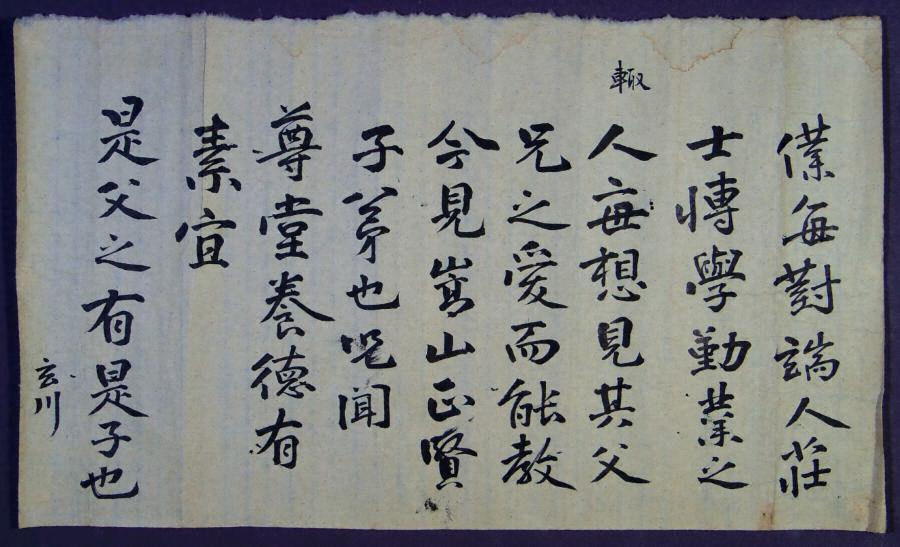 僕每對端人莊
士愽學勤業之
輙
人每想見其父
兄之愛而能教
今見嵩山正賢
子弟也况聞
尊堂養德有
素宜
是父之有是子也
玄川